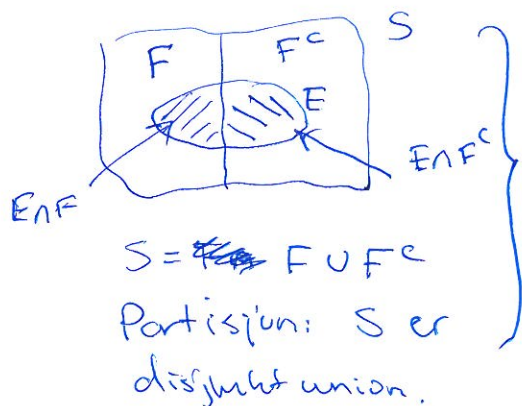 S
F F^c
E
E∩F E∩F^c
S = F ∪ F^c
Partisjon: S er
disjunkt union.